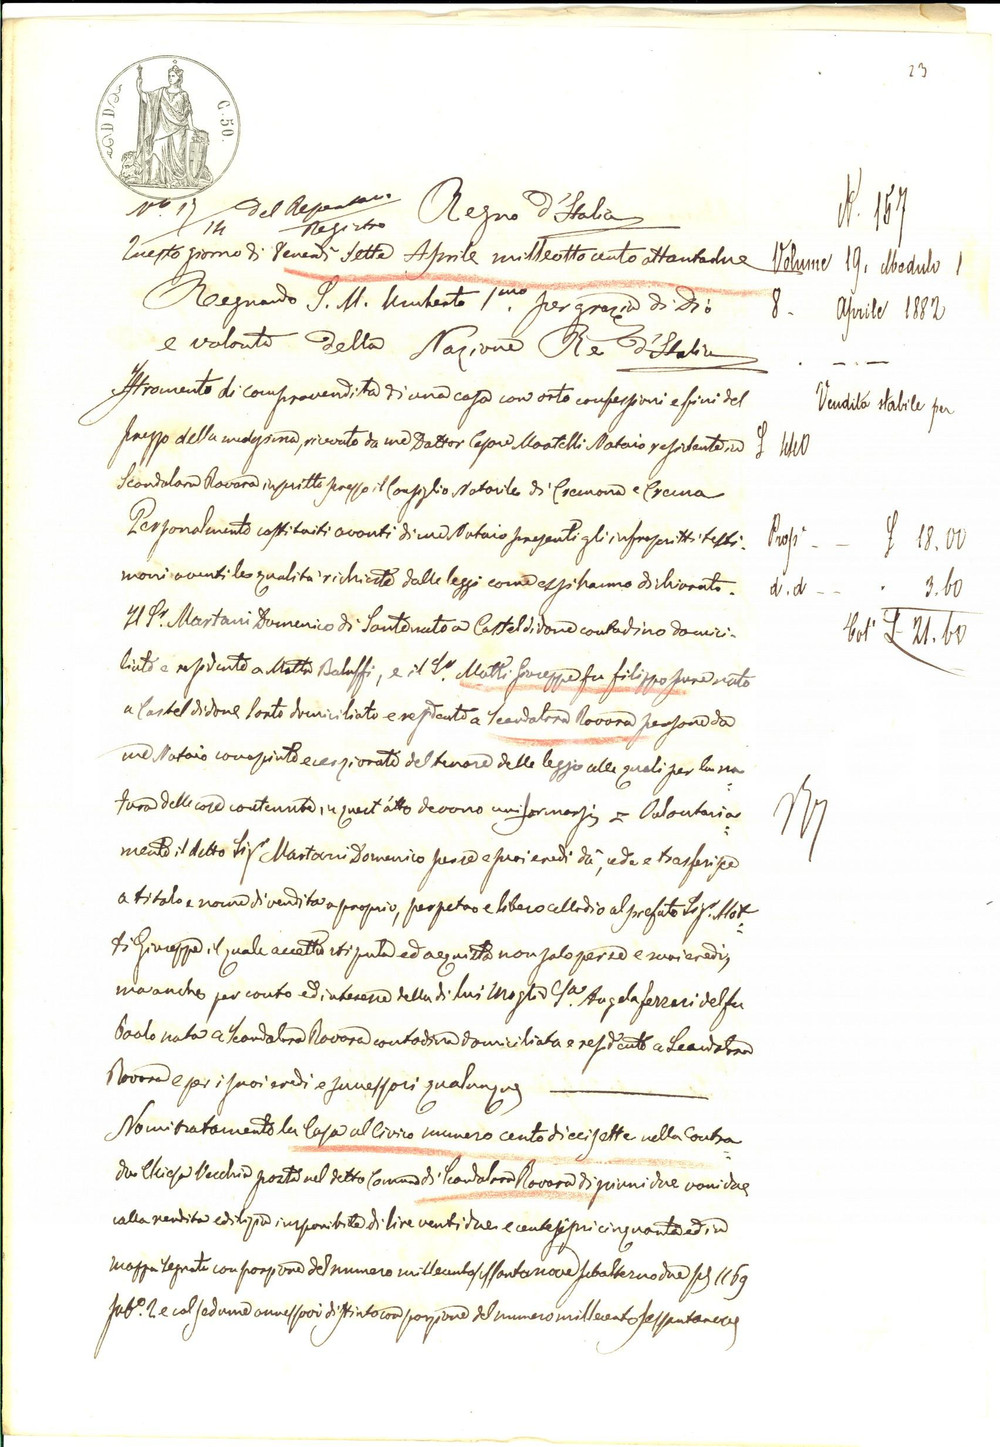 23
D D
C. 50.
N.º 17 del Repertorio
14 Registro
Regno d'Italia
N. 157
Questo giorno di Venerdì sette Aprile milleottocento ottantadue
Volume 19, Modulo 1
Regnando S. M. Umberto 1mo per grazia di Dio
8. Aprile 1882
e volontà della Nazione Re d'Italia
Istromento di compravendita di una casa con orto confessioni e fini del
Vendita stabile per
prezzo della medesima, ricevuto da me Dottor Cesare Martelli Notaio residente in
£ 440
Scandolara Ravara inscritto presso il Consiglio Notarile di Cremona e Crema
Personalmente costituiti avanti di me Notaio presenti gl'infrascritti testi-
Prop.e £ 18.00
moni aventi le qualità richieste dalle leggi come essi hanno dichiarato.
d.d 3.60
Il Sr. Martani Domenico di Santo nato a Casteldidone contadino domici-
Tot.e £ 21.60
liato e residente a Motta Baluffi, e il Sr. Motti Giuseppe fu Filippo pure nato
a Casteldidone Sarto domiciliato e residente a Scandolara Ravara persone da
me Notaio conosciute e cerziorate del tenore delle leggi alle quali per la na=
tura delle cose contenute in quest'atto devono uniformarsi = Volontaria=
mente il detto Sigr. Martani Domenico per se e suoi eredi dà, cede e trasferisce
a titolo e nome di vendita a proprio, perpetuo e libero allodio al prefato Sigr. Mot=
ti Giuseppe il quale accetta stipula ed acquista non solo per se e suoi eredi,
ma anche per conto ed interesse della di lui moglie Sra. Angela Ferrari del fu
Paolo nata a Scandolara Ravara contadina domiciliata e residente a Scandolara
Ravara e per i suoi eredi e successori qualunque
Nominatamente la Casa al Civico numero cento diecisette nella Contra=
da Chiesa Vecchia posta nel detto Comune di Scandolara Ravara di piani due vani due
colla rendita edilizia imponibile di lire ventidue e centesimi cinquanta ed in
mappa segnata con porzione del numero millecentosessantanove subalterno due pl 1169
sub.º 2 e col sedume annessovi distinto con porzione del numero millecentosessantanove